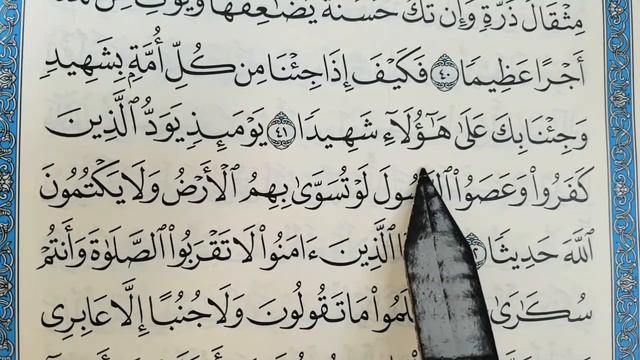 مِثْقَالَ ذَرَّةٍ وَإِن تَكُ حَسَنَةً يُضَٰعِفْهَا وَيُؤْتِ مِن
أَجْرًا عَظِيمًا ٤٠ فَكَيْفَ إِذَا جِئْنَا مِن كُلِّ أُمَّةٍۭ بِشَهِيدٍ
وَجِئْنَا بِكَ عَلَىٰ هَٰٓؤُلَآءِ شَهِيدًا ٤١ يَوْمَئِذٍ يَوَدُّ ٱلَّذِينَ
كَفَرُوا۟ وَعَصَوُا۟ ٱلرَّسُولَ لَوْ تُسَوَّىٰ بِهِمُ ٱلْأَرْضُ وَلَا يَكْتُمُونَ
ٱللَّهَ حَدِيثًا ٱلَّذِينَ ءَامَنُوا۟ لَا تَقْرَبُوا۟ ٱلصَّلَوٰةَ وَأَنتُمْ
سُكَٰرَىٰ مَا تَقُولُونَ وَلَا جُنُبًا إِلَّا عَابِرِى